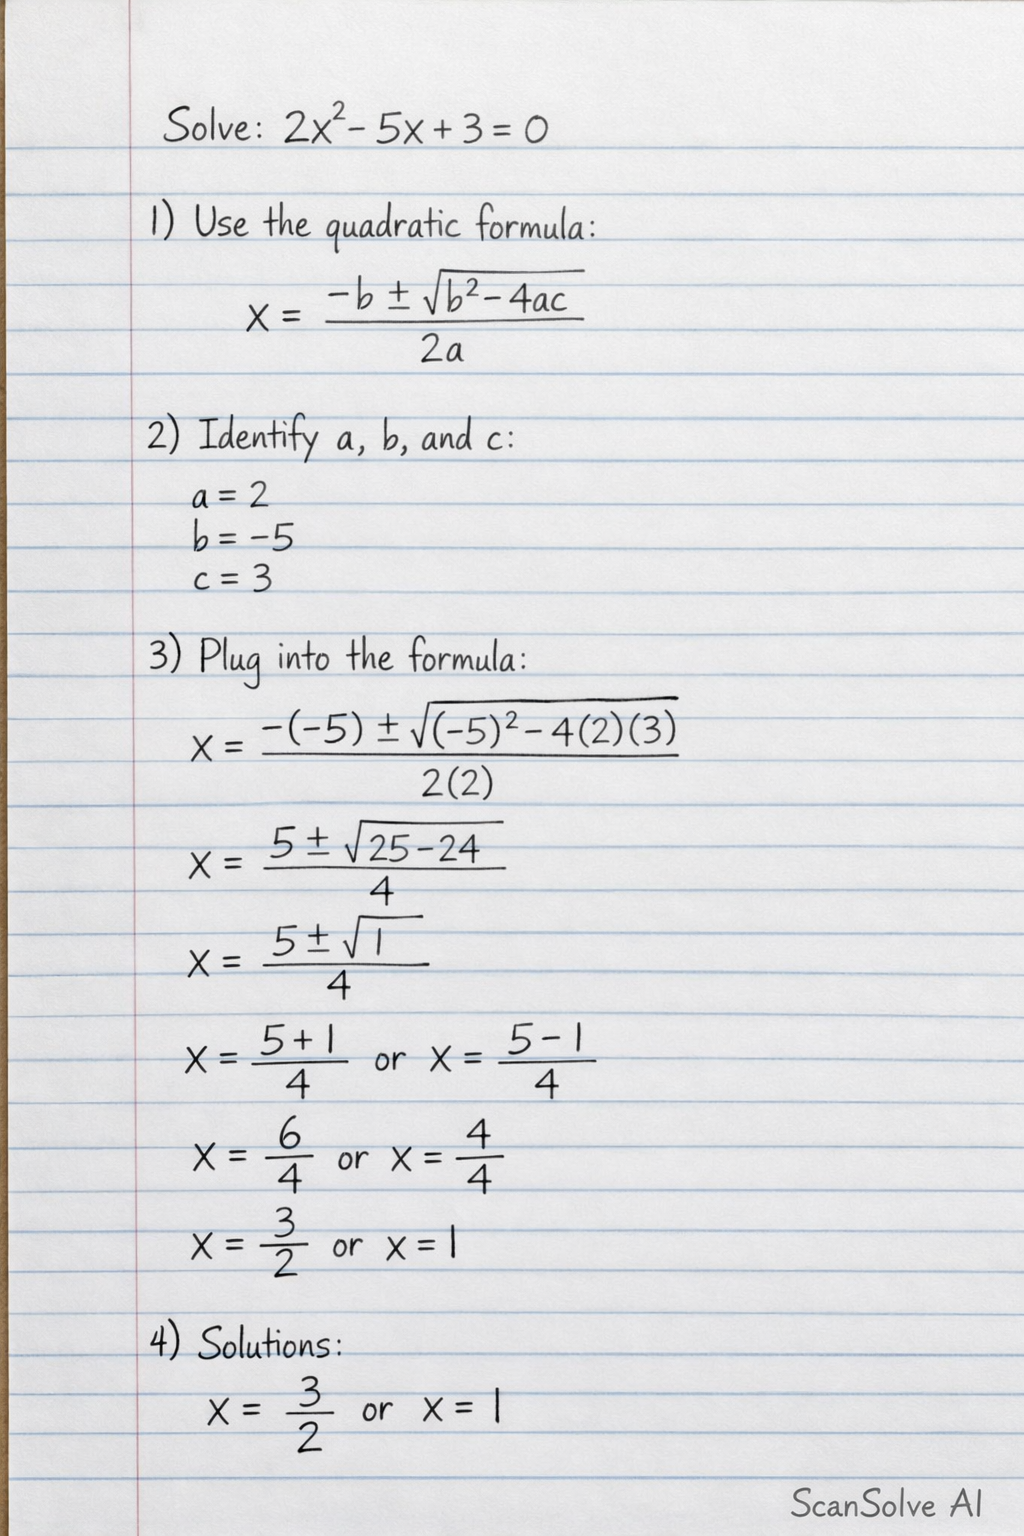 Solve: 2x² - 5x + 3 = 0
1) Use the quadratic formula:
x = (-b ± √(b² - 4ac)) / 2a
2) Identify a, b, and c:
a = 2
b = -5
c = 3
3) Plug into the formula:
x = (-(-5) ± √((-5)² - 4(2)(3))) / 2(2)
x = (5 ± √(25 - 24)) / 4
x = (5 ± √1) / 4
x = (5 + 1) / 4 or x = (5 - 1) / 4
x = 6/4 or x = 4/4
x = 3/2 or x = 1
4) Solutions:
x = 3/2 or x = 1
ScanSolve AI